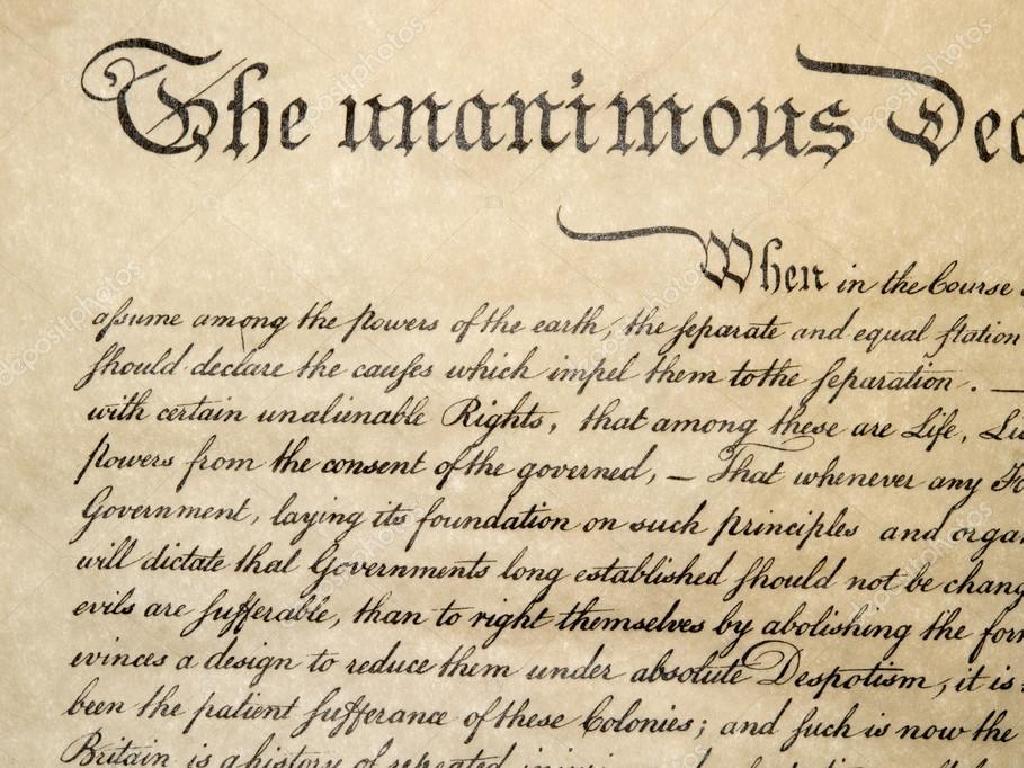 The unanimous Dec
When in the Course
aſsume among the powers of the earth, the ſeparate and equal ſtation
ſhould declare the cauſes which impel them to the ſeparation. —
with certain unalienable Rights, that among these are Life, Li
powers from the consent of the governed, — That whenever any Fo
Government, laying its foundation on such principles and organ
will dictate that Governments long established ſhould not be chang
evils are ſufferable, than to right themselves by abolishing the for
evinces a design to reduce them under absolute Despotism, it is
been the patient ſufferance of these Colonies; and ſuch is now the
Britain is a history of repeated